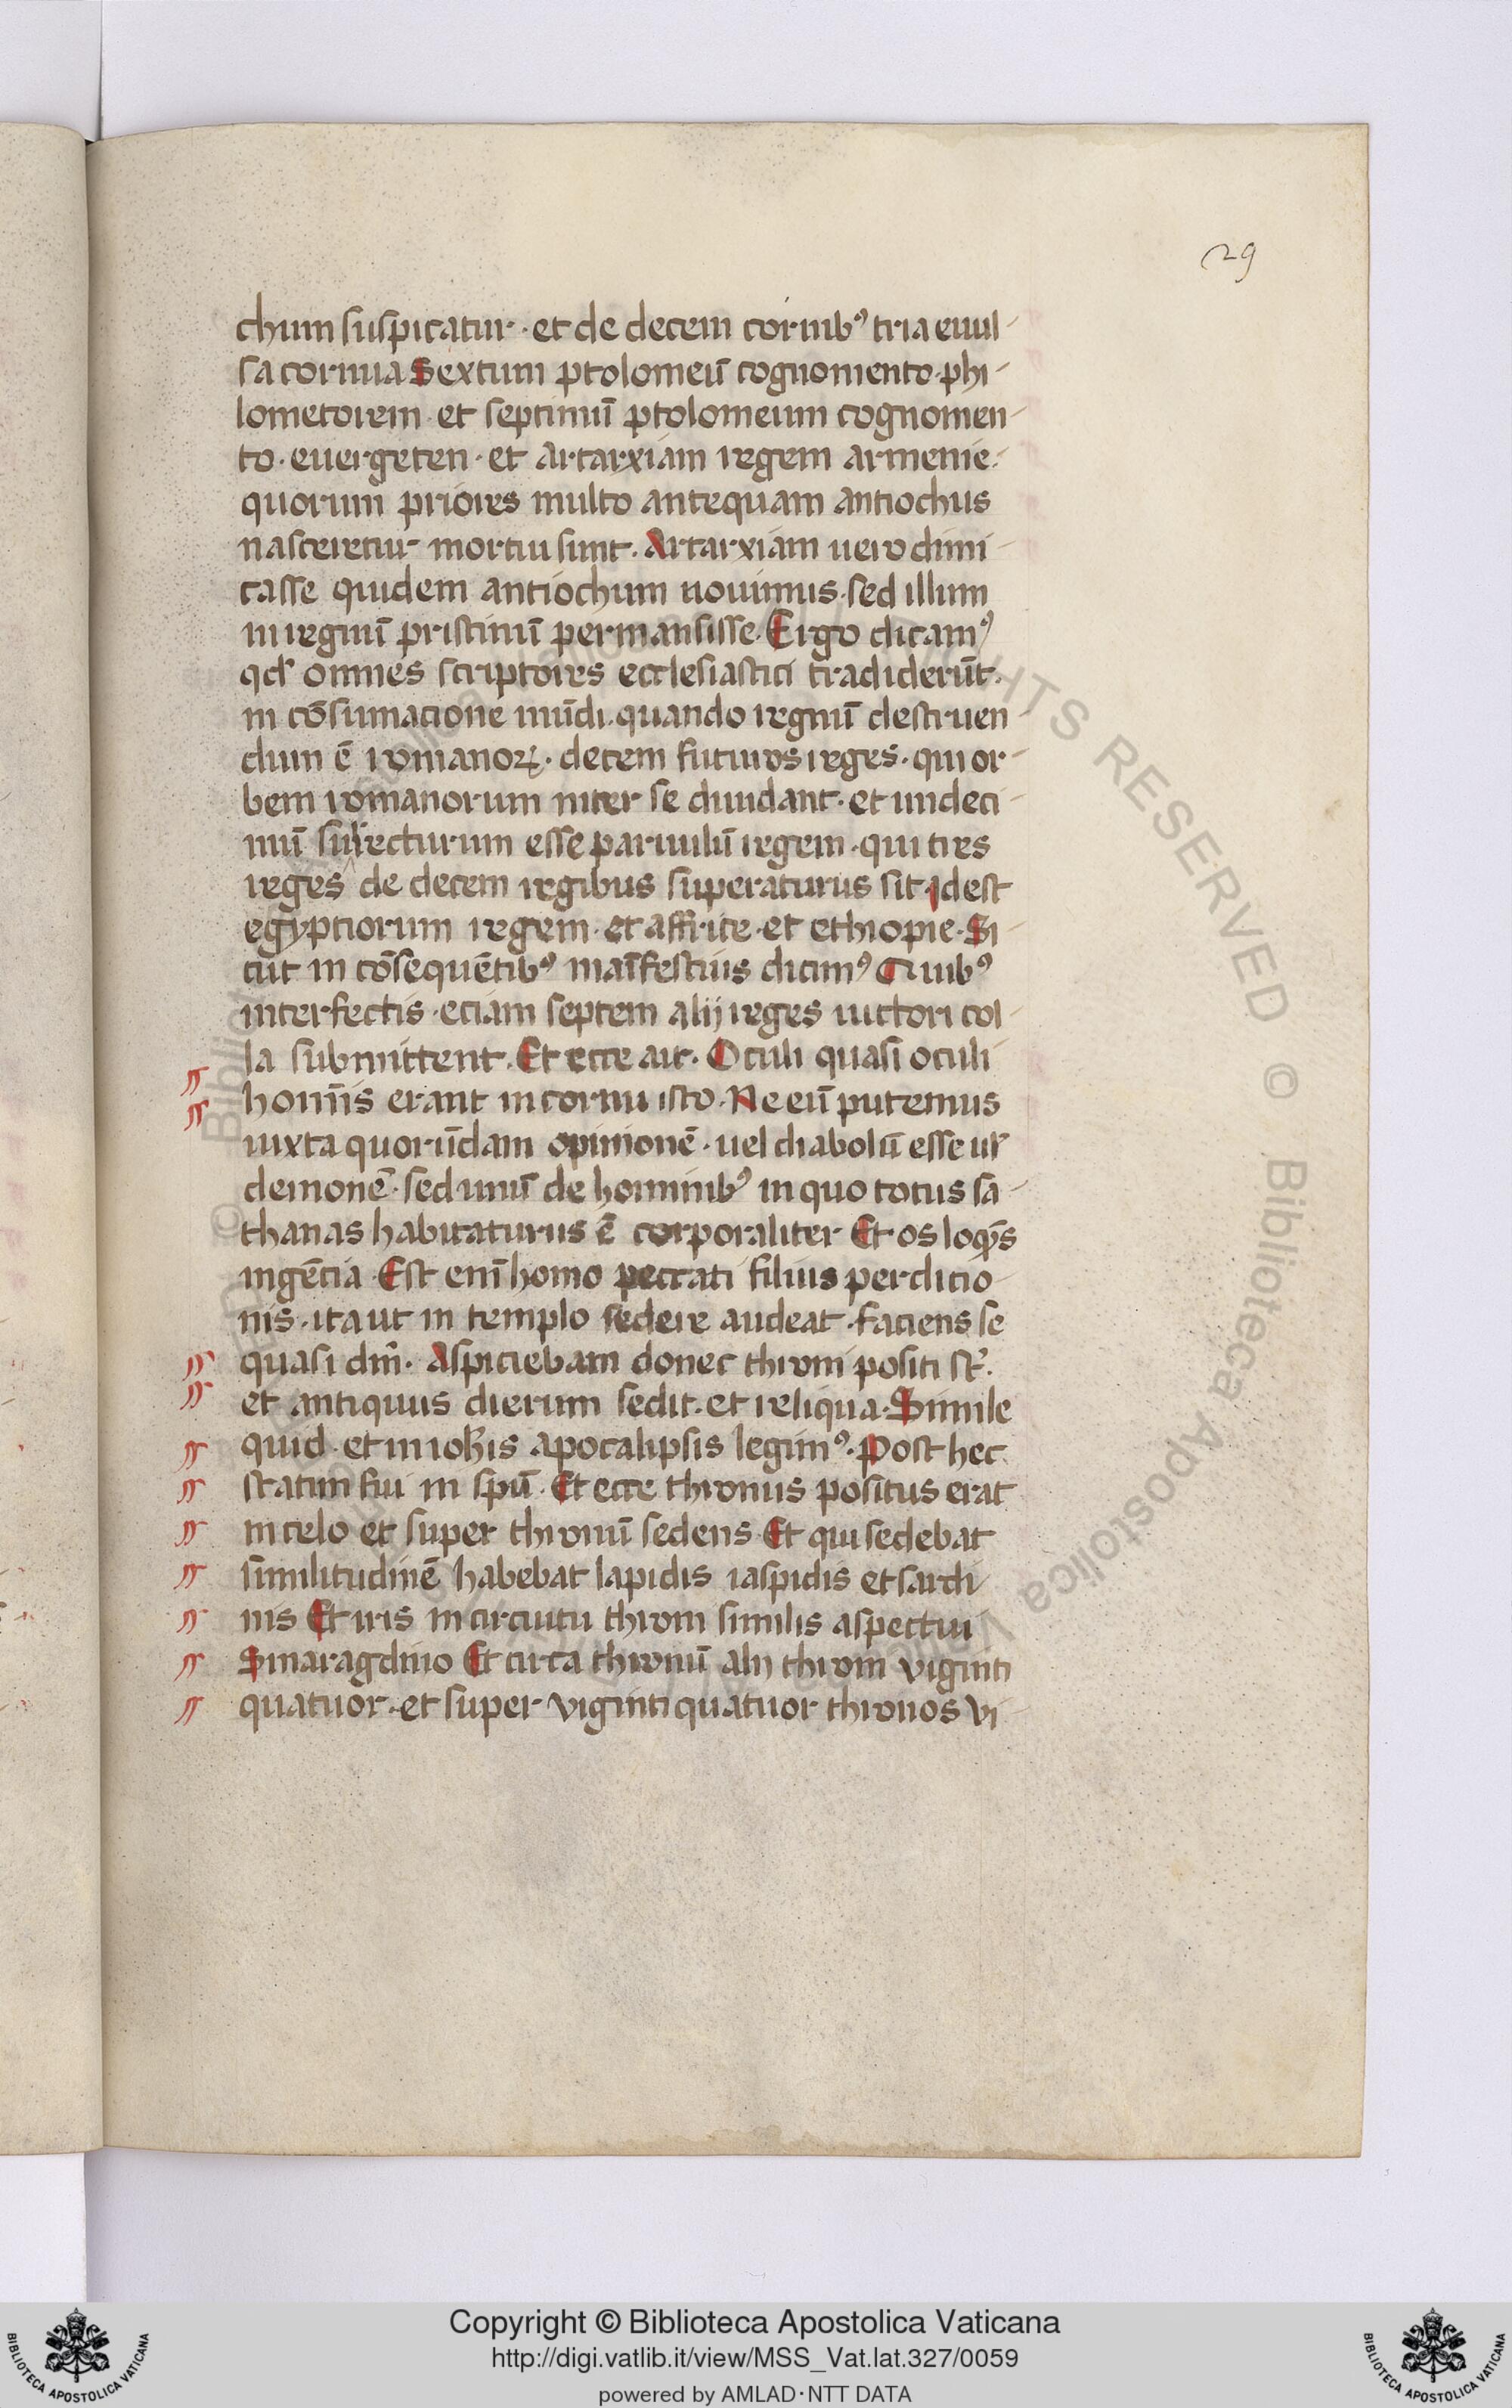 29
chum suspicatur · et de decem cornibꝰ tria euul-
sa cornua Sextum ptolomeū cognomento · phi-
lometorem · et septimū ptolomeum cognomen-
to · euergeten · et artarxiam regem armenie ·
quorum priores multo antequam antiochus
nasceretur mortui sunt. Artarxiam uero dimi-
casse quidem antiochum nouimus · sed illum
in regnū pristinū permansisse. Ergo dicamꝰ
qd' omnes scriptores ecclesiastici tradiderūt.
in cōsumacione mūdi · quando regnū destruen-
dum ē romanoꝝ · decem futuros reges · qui or-
bem romanorum inter se diuidant · et undeci-
mū surrecturum esse paruulū regem · qui tres
reges de decem regibus superaturus sit Idest
egyptiorum regem · et affrice · et ethiopie · Si-
cut in cōsequētibꝰ maīfestius dicimꝰ Quibꝰ
interfectis · eciam septem alij reges uictori col-
la submittent. Et ecce ait. Oculi quasi oculi
homīs erant in cornu isto. Ne eū putemus
iuxta quorūdam opinionē · uel diabolū esse ul'
demonē · sed unū de hominibꝰ in quo totus sa-
thanas habitaturus ē corporaliter Et os loqn̄s
ingēcia Est eni' homo peccati filius perdicio-
nis · ita ut in templo sedere audeat · faciens se
quasi dm̄. Aspiciebam donec throni positi st̄.
et antiquus dierum sedit · et reliqua · Simile
quid · et in ioħis apocalipsis legimꝰ · Post hec
statim fui in spū · Et ecce thronus positus erat
in celo et super thronū sedens Et qui sedebat
similitudinē habebat lapidis iaspidis et sardi-
nis Et iris in circuitu throni similis aspectui
Smaragdino Et circa thronū alij throni viginti
quatuor · et super viginti quatuor thronos vi-
Copyright © Biblioteca Apostolica Vaticana
http://digi.vatlib.it/view/MSS_Vat.lat.327/0059
powered by AMLAD·NTT DATA
BIBLIOTECA APOSTOLICA VATICANA
BIBLIOTECA APOSTOLICA VATICANA